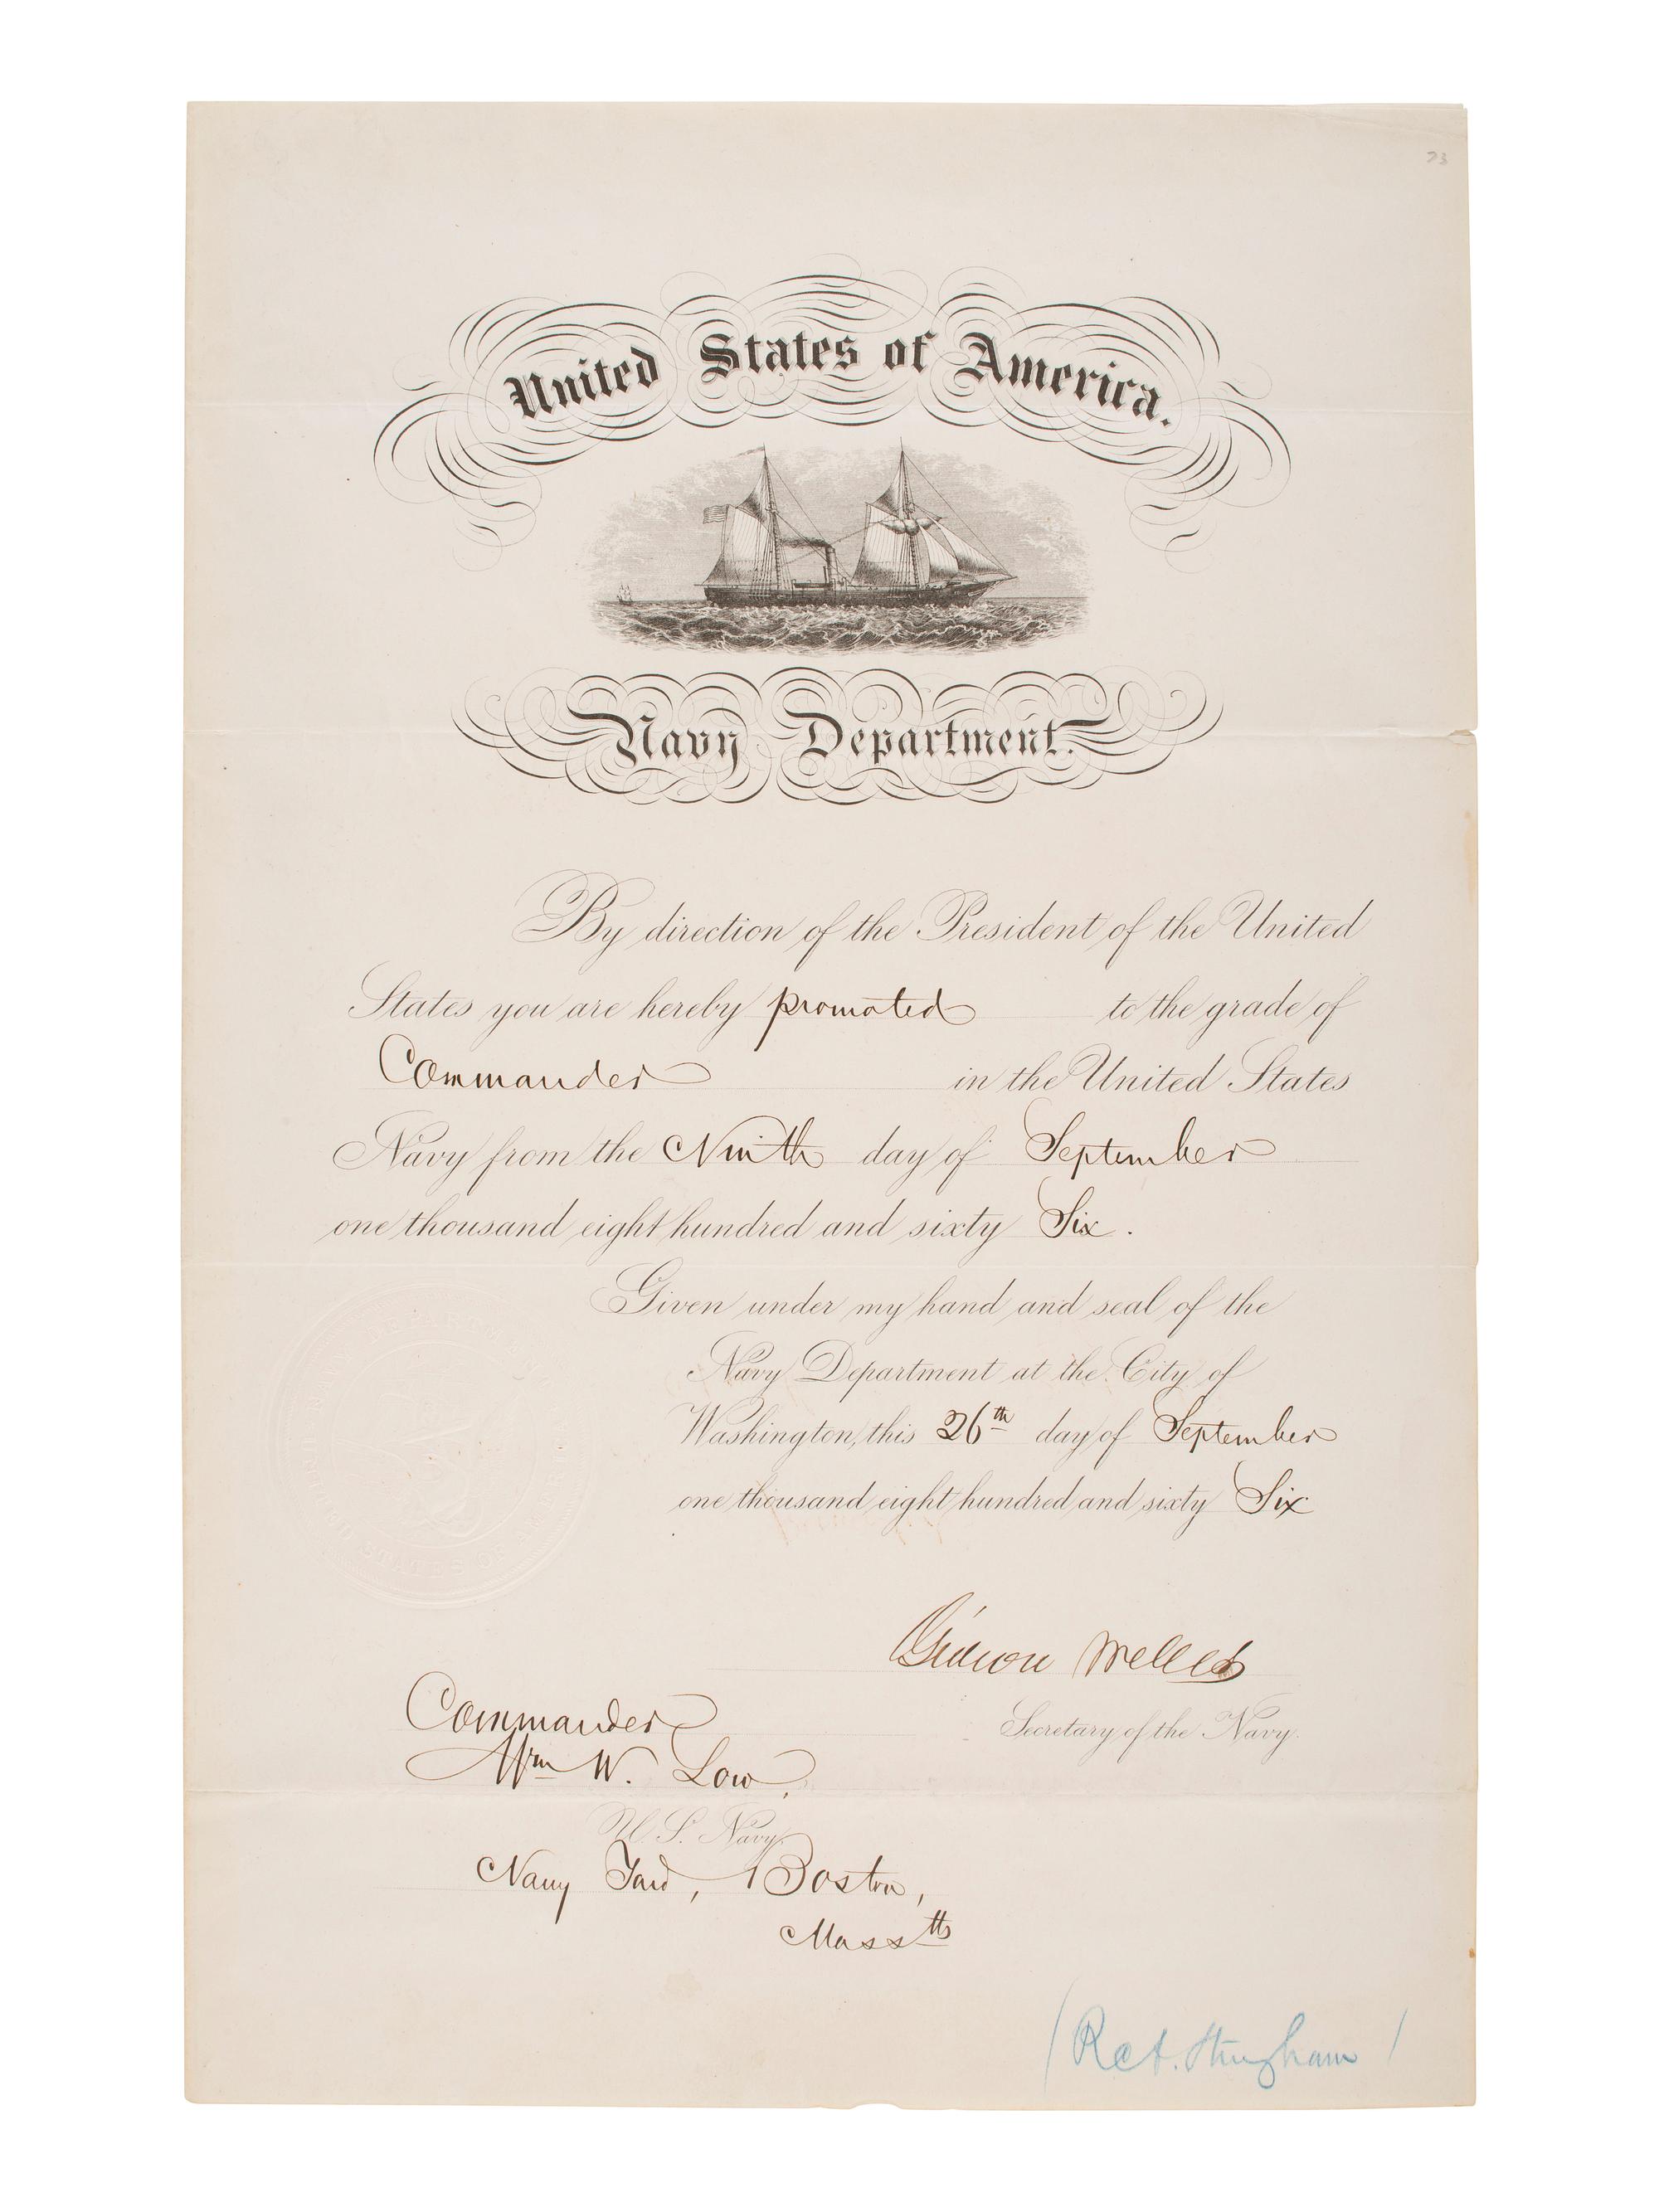 23
United States of America.
Navy Department.
By direction of the President of the United
States you are hereby promoted to the grade of
Commander in the United States
Navy from the Ninth day of September
one thousand eight hundred and sixty Six.
Given under my hand and seal of the
Navy Department at the City of
Washington, this 26th day of September
one thousand eight hundred and sixty Six
Gideon Welles
Secretary of the Navy.
Commander
Wm W. Low,
U. S. Navy.
Navy Yard, Boston,
Mass tts
STATES OF